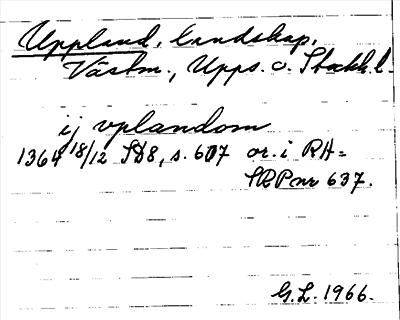 Uppland, landskap,
Västm., Upps. o. Stockh. l.
ij vplandom
1364 18/12 SD8, s. 607 or. i RA =
SRP nr 637.
G.L. 1966.